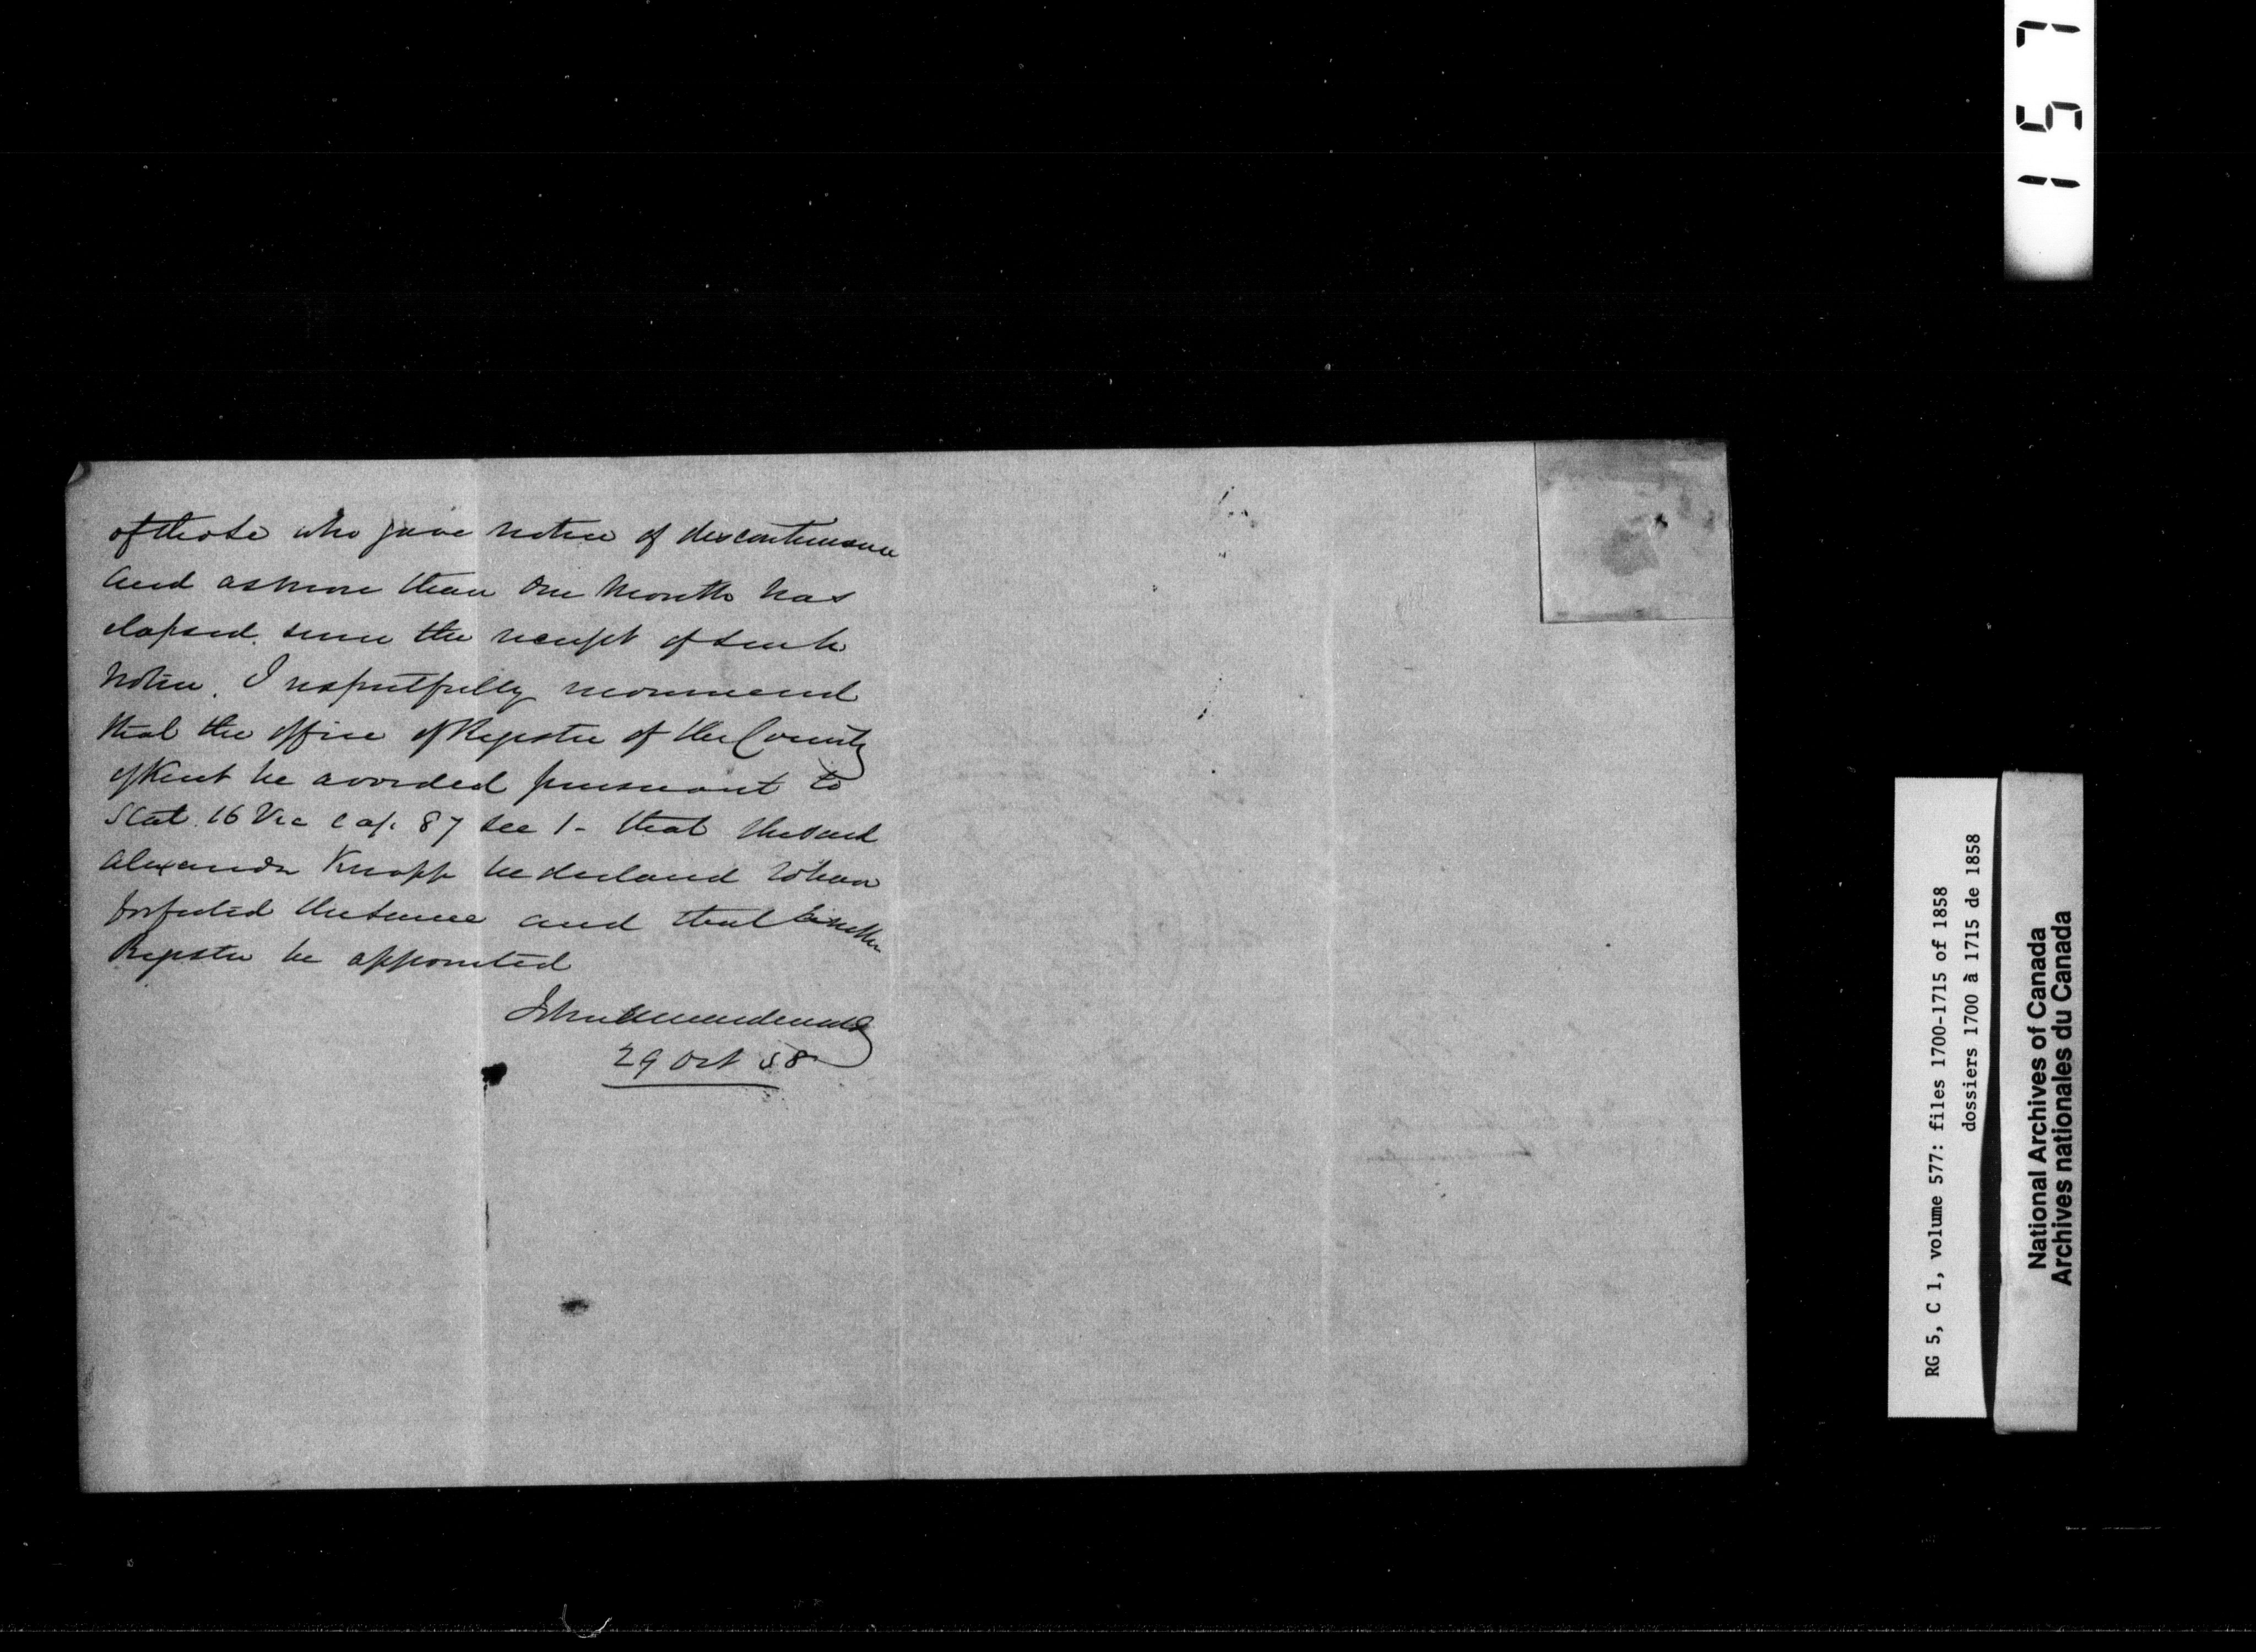 of those who gave notice of discontinuance
and as more than One Month has
elapsed since the receipt of such
Notice. I respectfully recommend
that the office of Register of the County
of Kent be avoided pursuant to
Stat. 16 Vic cap. 87 sec 1 - that the said
Alexander Knapp be declared to have
forfeited the same and that another
Register be appointed
John A Macdonald
29 Oct 58
157
RG 5, C 1, volume 577: files 1700-1715 of 1858
dossiers 1700 à 1715 de 1858
National Archives of Canada
Archives nationales du Canada